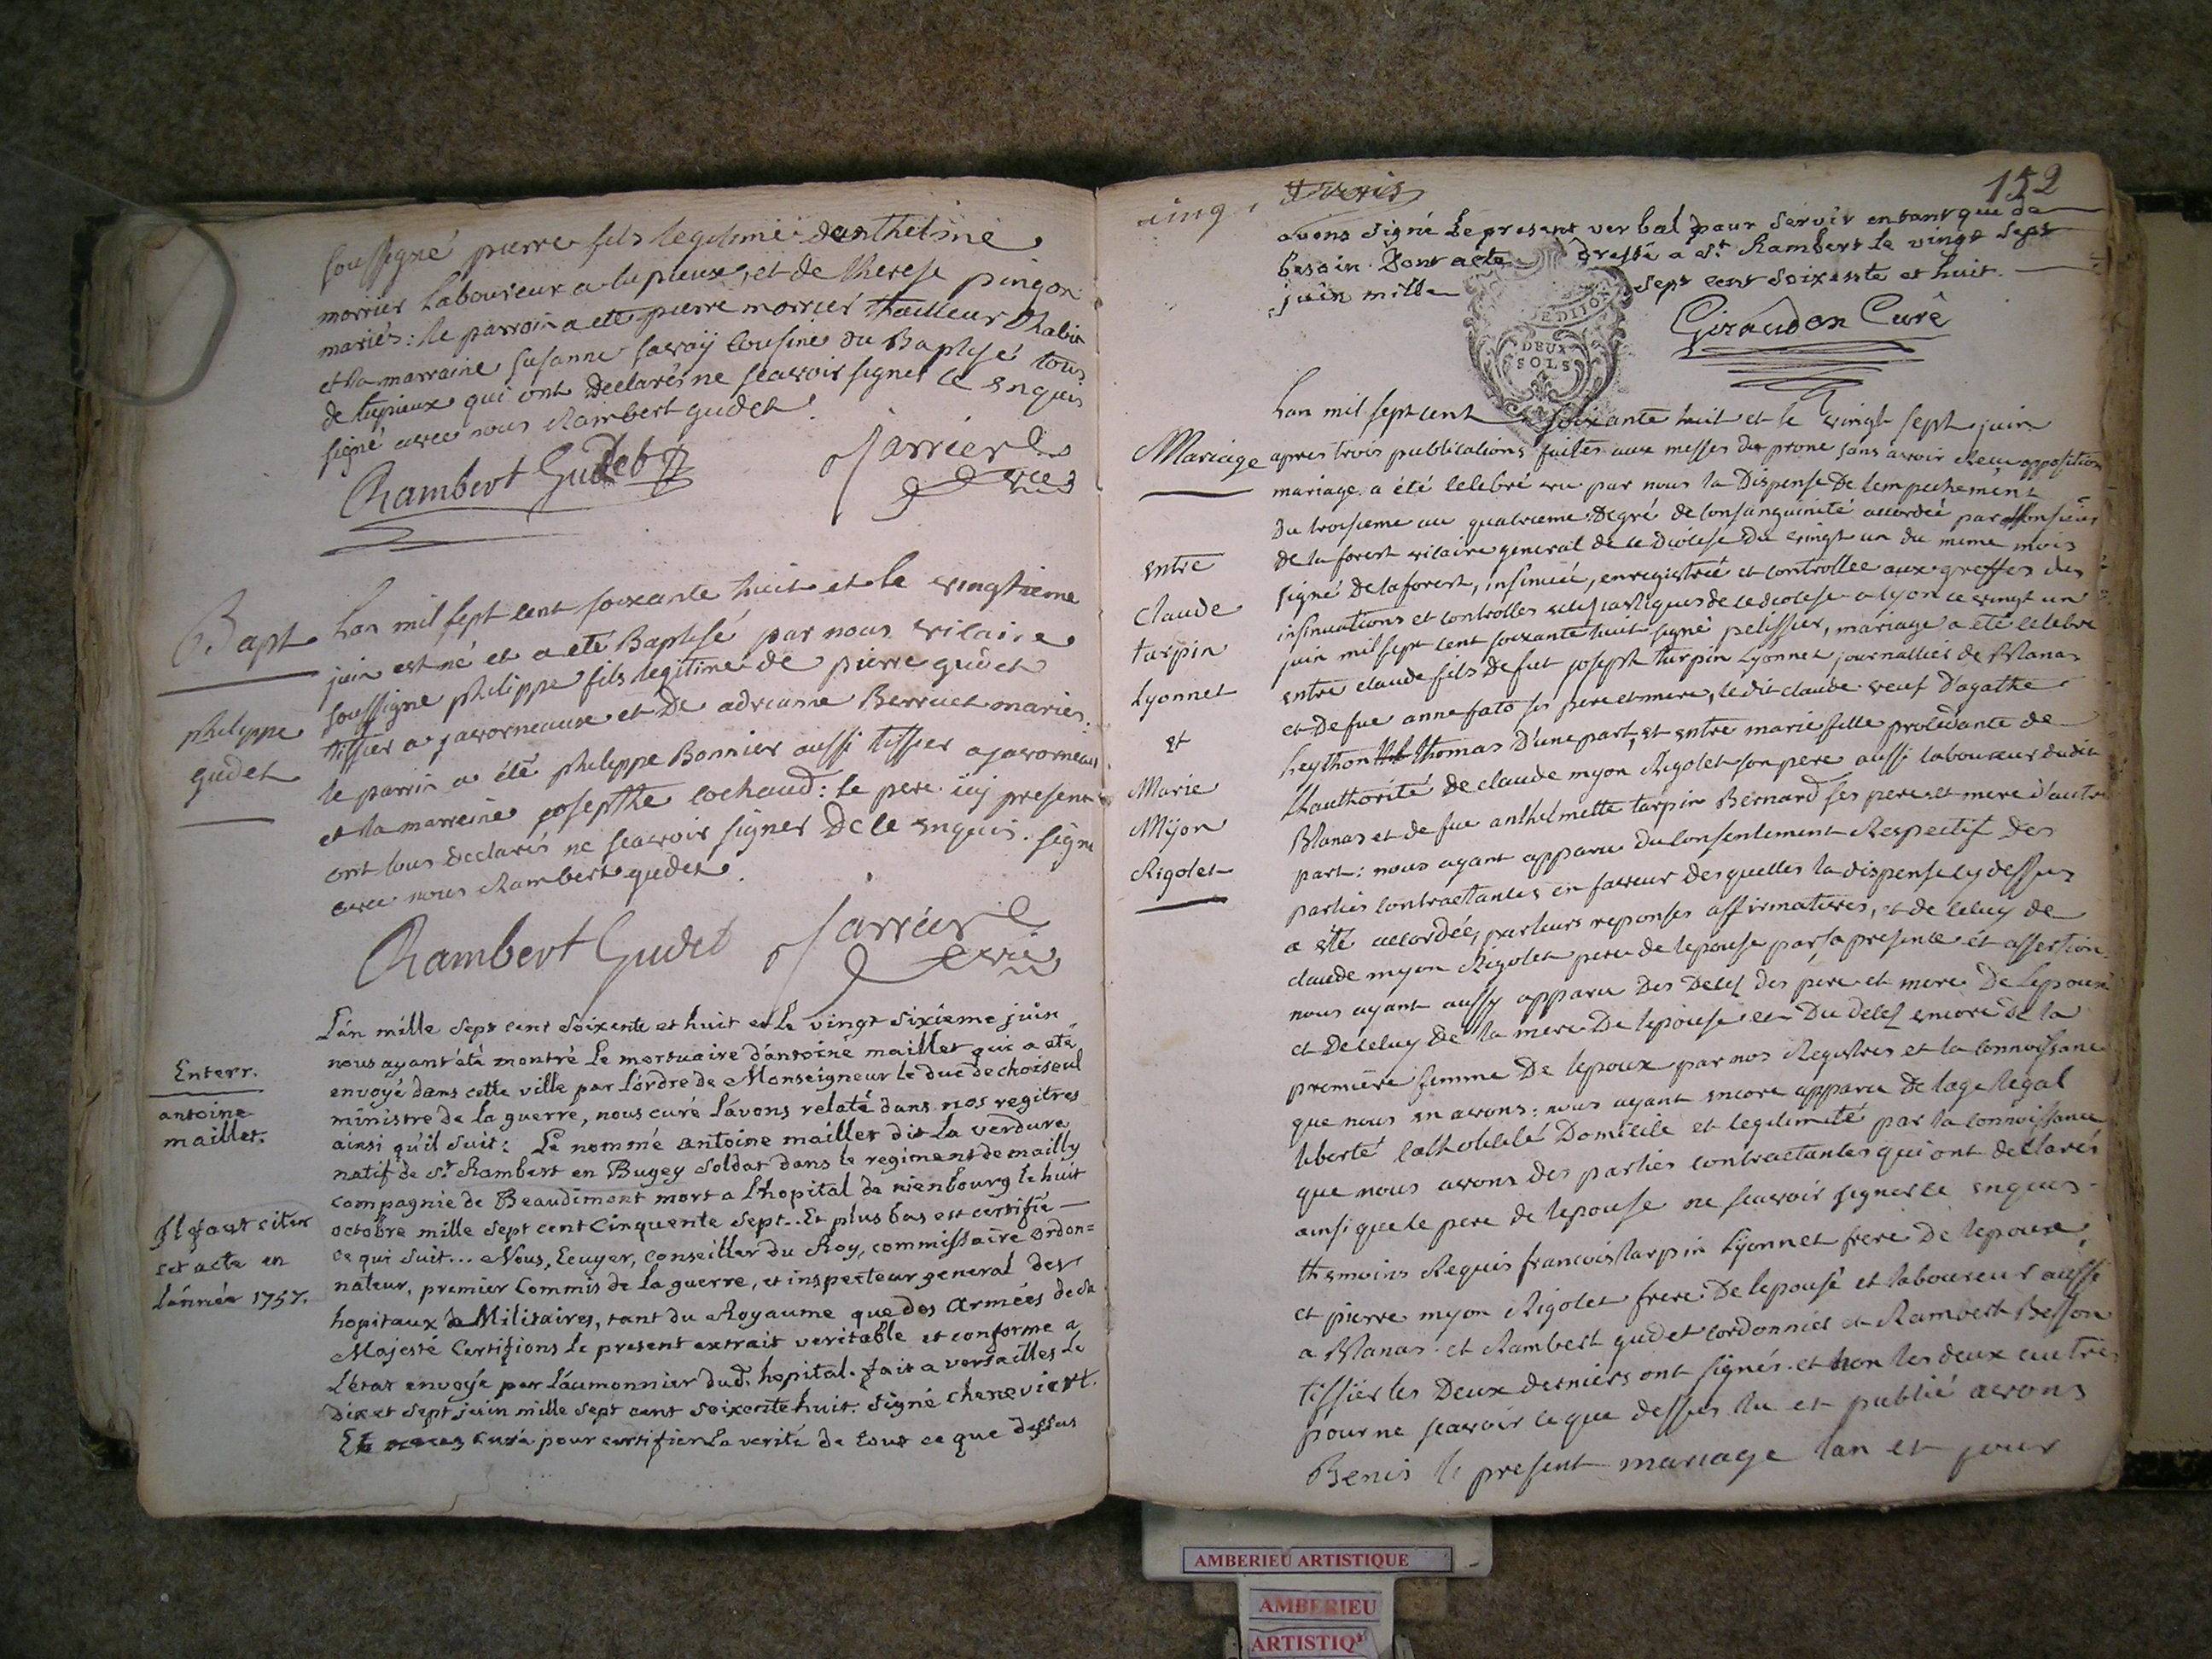 soussigné pierre fils legitime danthelme
morrier laboureur a lupieux, et de therese pingon
mariés: le parroin a eté pierre morrier tailleur
et la marraine susanne savaÿ cousine du Baptisé tous
de lupieux qui ont declarés ne scavoir signer ce enquis
signé avec nous Rambert gudet.
Rambert Gudet Jarrier
vic
Bapt
philyppe
gudet
Lan mil sept cent soixante huit et le vingtieme
juin est né et a eté Baptisé par nous vicaire
soussigne philippe fils legitime de pierre gudet
tissier a javorneaux et de adrianne Berruet mariés.
le parrin a été philippe Bonnier aussi tissier a javorneaux
et la marreine josepthe cochaud: le pere icy present
ont tous declarés ne scavoir signer de ce enquis. signé
avec nous Rambert gudet.
Rambert Gudet Jarrier
vic
Enterr.
antoine
maillet.
Il faut citer
cet acte en
lánnée 1757.
Lán mille sept cent soixente et huit et le vingt sixieme juin
nous ayant été montré le mortuaire dántoine maillet qui a eté
envoyé dans cette ville par lórdre de Monseigneur le duc de choiseul
ministre de la guerre, nous curé lávons relaté dans nos regitres
ainsi qu'il suit: Le nommé antoine maillet dit la verdure
natif de St Rambert en Bugey soldat dans le regiment de mailly
compagnie de Beaudimont mort a lhopital de nienbourg le huit
octobre mille sept cent cinquente sept.. Et plus bas est certifié
ce qui suit... Nous, Ecuyer, conseiller du Roy, commissaire ordon=
nateur, premier commis de la guerre, et inspecteur general des
hopitaux Militaires, tant du Royaume que des armées de sa
Majesté certifions le present extrait veritable et conforme a
létat envoyé par láumonnier dud. hopital. fait a versailles le
dix et sept juin mille sept cent soixente huit. signé cheneviert.
Et curé pour certifier la verité de tout ce que dessus
cinq
152
avons signé le present verbal pour servir en tant que de
besoin Dont acte dressé a St. Rambert le vingt sept
juin mille sept cent soixente et huit.
Giraudon Curé
DEUX
SOLS
Mariage
entre
Claude
tarpin
Lyonnet
et
Marie
Mÿon
Rigolet
Lan mil sept cent soixante huit et le vingt sept juin
apres trois publications faites aux messes du prone sans avoir Receu opposition
mariage a été celebré vu par nous la Dispense De lempechement
Du troisieme au quatrieme Degré de consanguinité accordée par Monsieur
De la forest vicaire general de ce Diocese Du vingt un du meme mois
signé De laforest, insinuée, enregistrée et controllée aux greffes des
insinuations et controlles ecclesiastiques de ce diocese a lyon ce vingt un
juin mil sept cent soixante huit signé pelissier, mariage a eté celebré
entre claude fils De fut joseph tarpin Lyonnet journallier de Blanas
et De fue anne fato ses pere et mere, ledit claude veuf D'agathe
thomas D'une part, et entre marie fille procedante de
Lauthorité de claude myon Rigolet son pere aussi laboureur dudit
Blanas et de fue anthelmette tarpin Bernard ses pere et mere d'autre
part: nous ayant apparu du consentement Respectif des
parties contractantes en faveur desquelles la dispense cy dessus
a eté accordée, par leurs reponses affirmatives, et de celuy de
claude myon Rigolet pere de lepouse par sa presence et assertion
nous ayant aussy apparu Des Decès des pere et mere De lepoux
et De celuy De la mere De lepouse et Du deces encore de la
premiere femme De lepoux par nos Registres et la connoissance
que nous en avons: nous ayant encore apparu de lage legal
liberté catholicité Domicile et legitimité par la connoissance
que nous avons des parties contractantes qui ont declarés
ainsi que le pere de lepouse ne scavoir signer ce enquis
themoins Requis francois tarpin Lÿonnet frere De lepoux,
et pierre myon Rigolet frere De lepouse et laboureur aussi
a Blanas. et Rambert gudet cordonnier et Rambert Besson
tissier les Deux derniers ont signés et non les deux autres
pour ne scavoir ce que dessus lu et publié avons
Benis le present mariage lan et jour
AMBERIEU ARTISTIQUE
AMBERIEU
ARTISTIQ